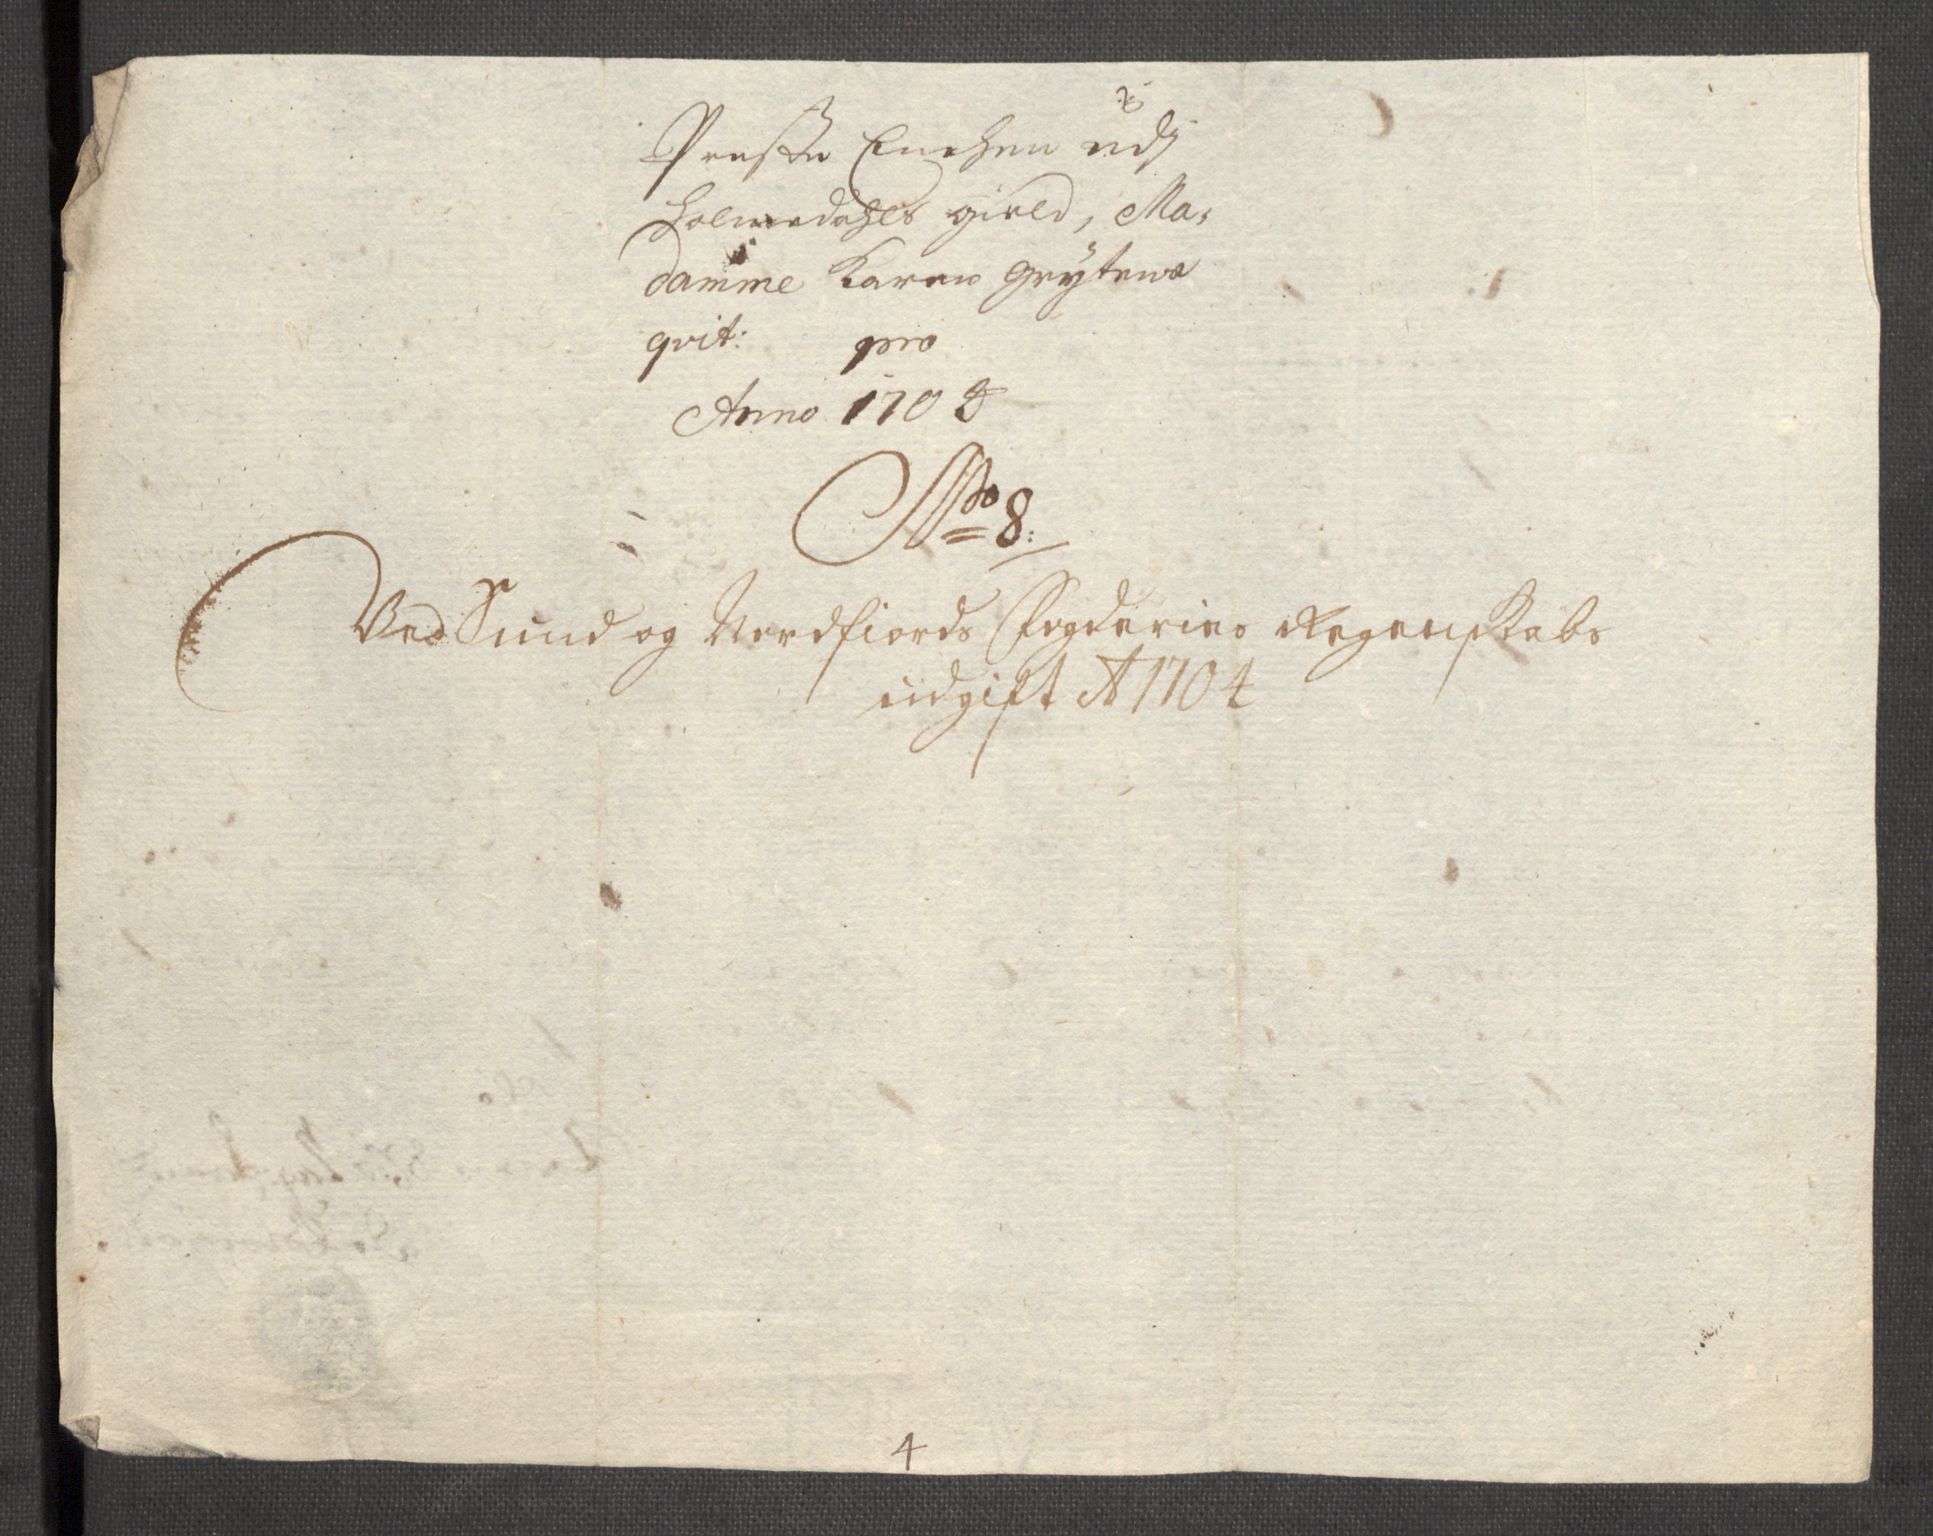 Preste Enchen udj
Holmedahls gield, Ma,
damme Karen Grytens
qvit: pro
Anno 1704
No 8:
Ved Sund og Nordfiords Fogderies Regenskabs
udgift A 1704
4